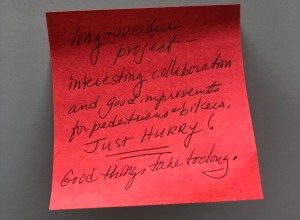 long-overdue
project—
interesting collaboration
and good improvements
for pedestrians & bikers.
JUST HURRY!
Good things take too long.